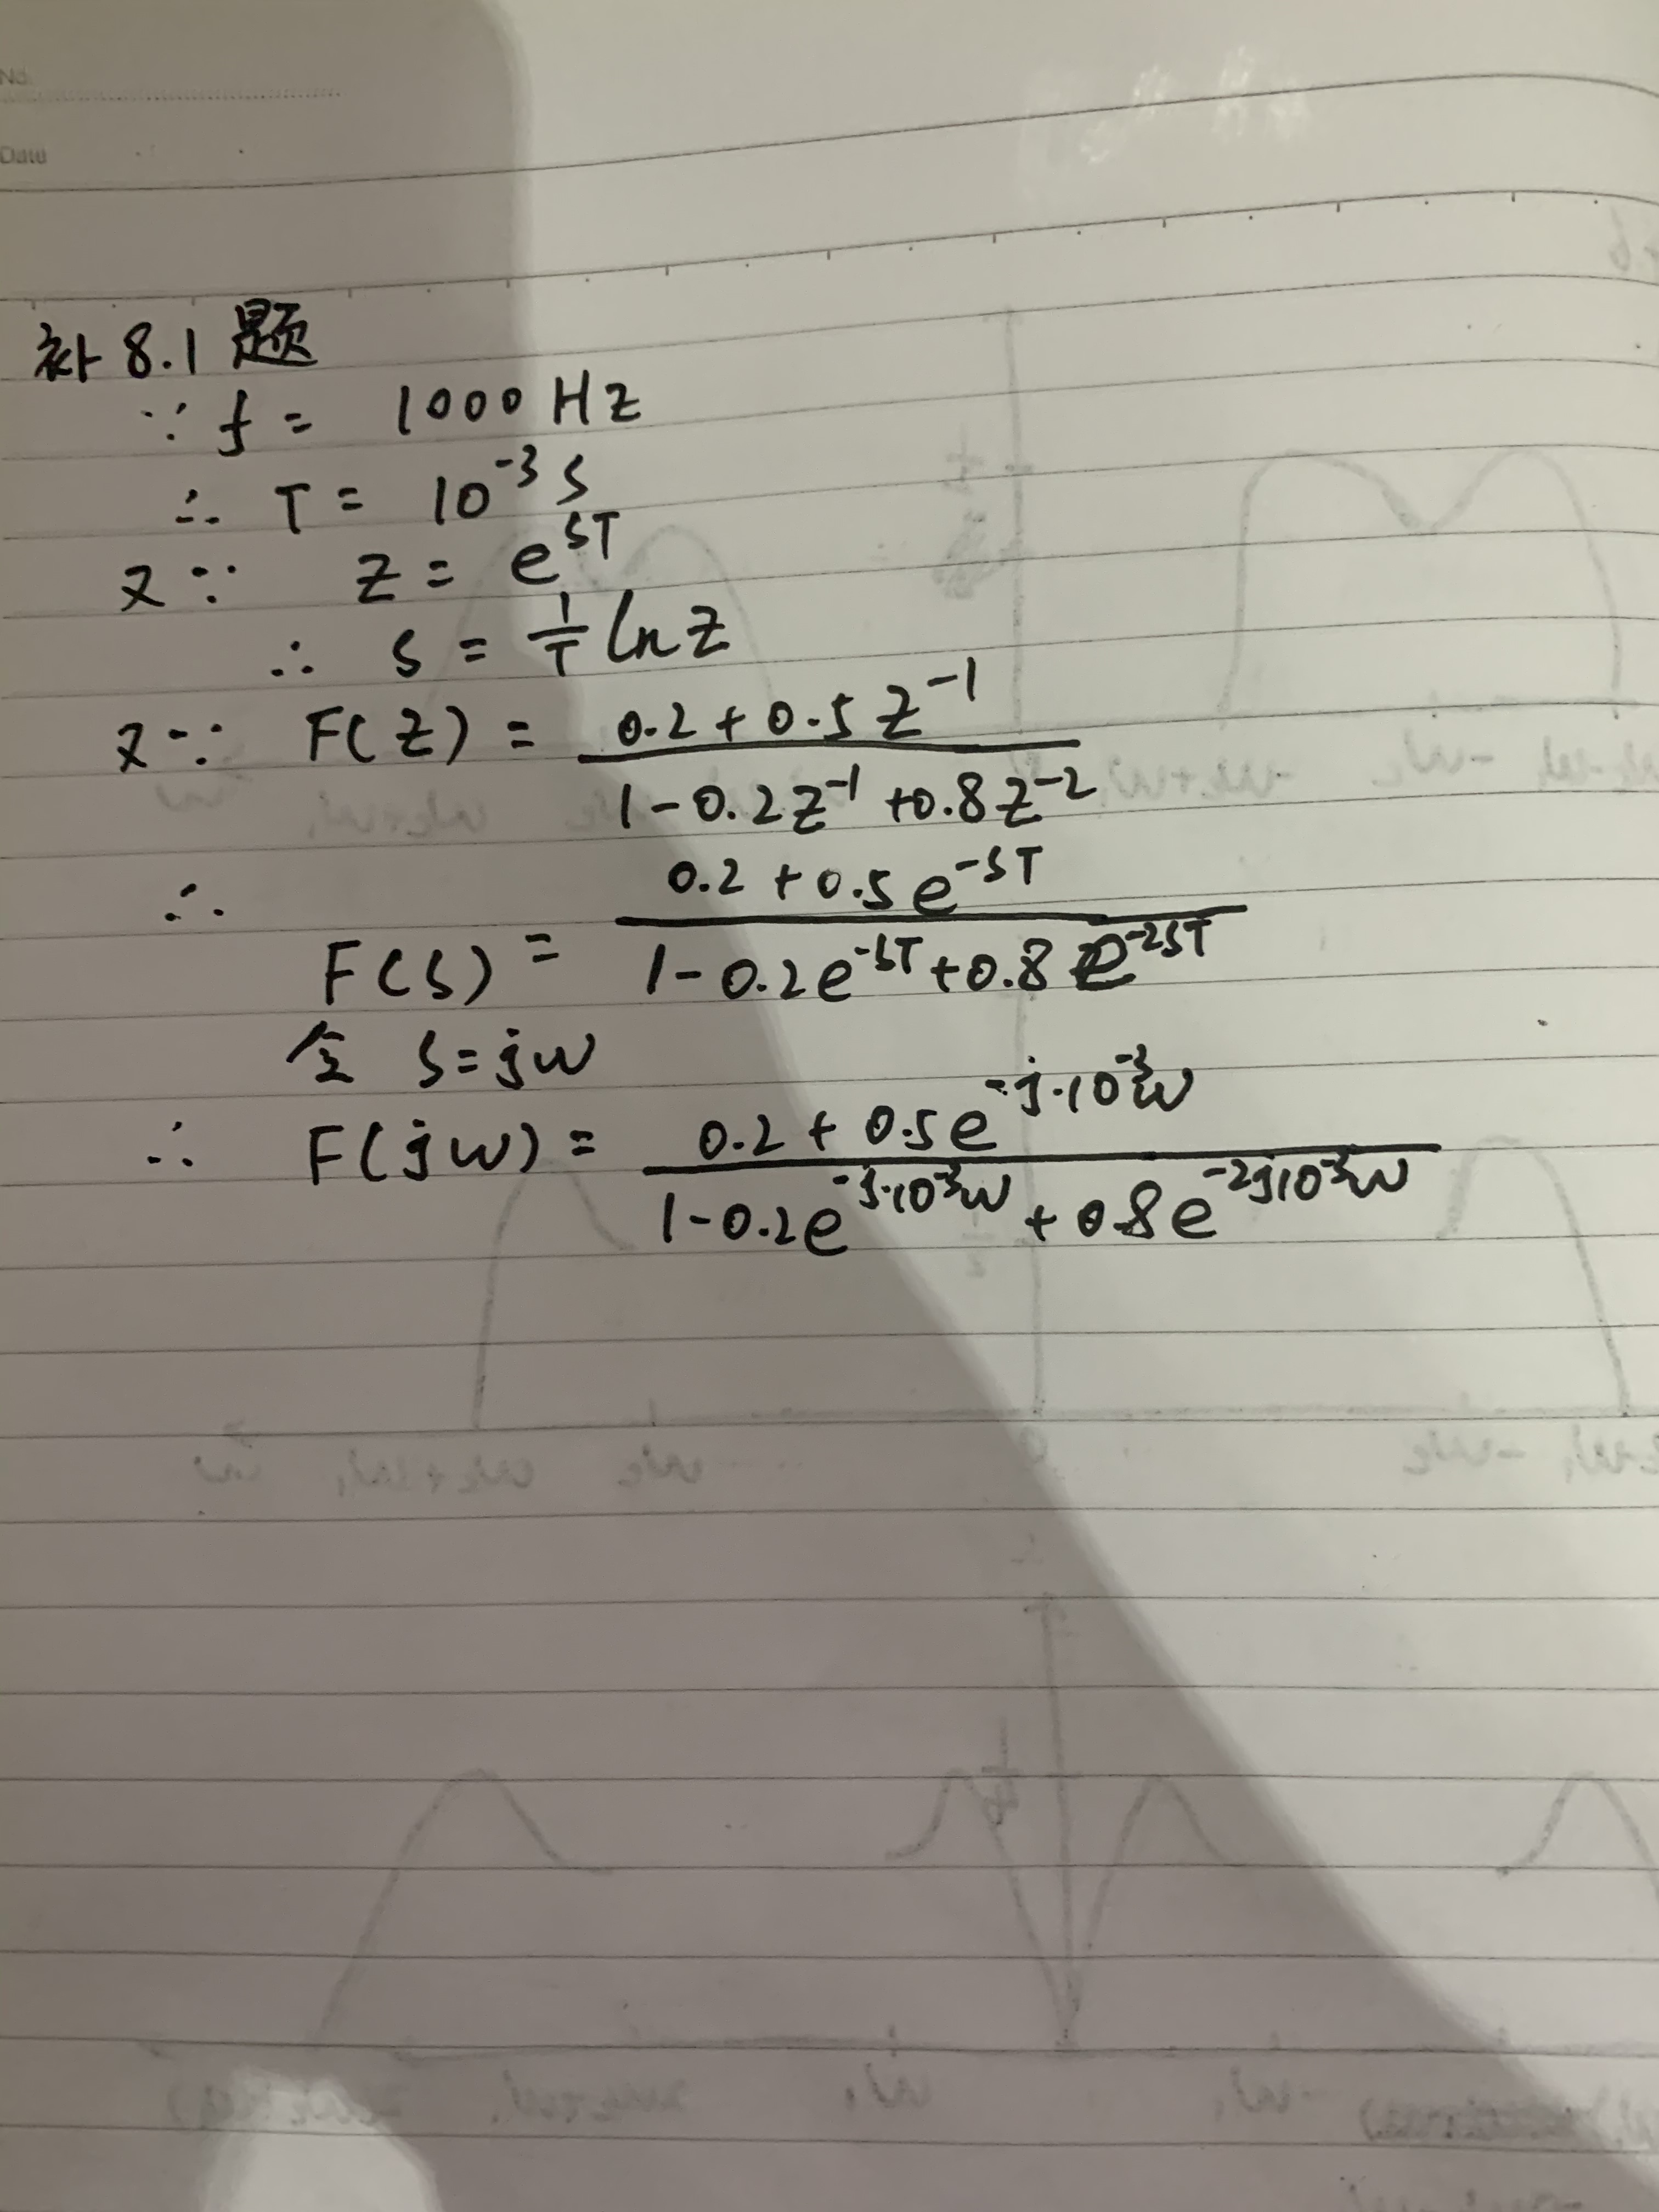 No.
Date
补 8.1 题
∵ f = 1000 Hz
∴ T = 10⁻³ s
又∵ z = e^{sT}
∴ s = \frac{1}{T} ln z
又∵ F(z) = \frac{0.2 + 0.5 z^{-1}}{1 - 0.2 z^{-1} + 0.8 z^{-2}}
∴ F(s) = \frac{0.2 + 0.5 e^{-sT}}{1 - 0.2 e^{-sT} + 0.8 e^{-2sT}}
令 s = jω
∴ F(jω) = \frac{0.2 + 0.5 e^{-j·10^{-3}ω}}{1 - 0.2 e^{-j·10^{-3}ω} + 0.8 e^{-2j10^{-3}ω}}